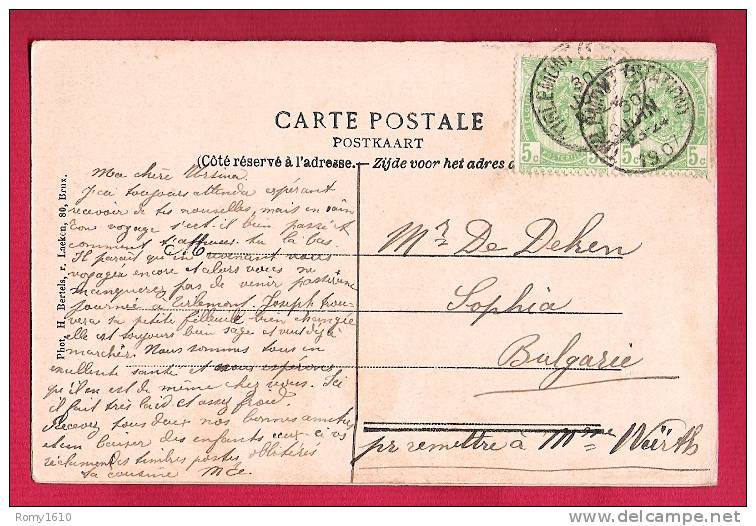 CARTE POSTALE
POSTKAART
(Côté réservé à l'adresse.— Zijde voor het adres
5c 5c 5c 5c
TIRLEMONT (STATION)
Phot. H. Bertels, r. Laeken, 80, Brux.
Ma chère Ursina
J'ai toujours attendu espérant
recevoir de tes nouvelles, mais en vain
ton voyage s'est-il bien passé et
comment t'amuses-tu là bas.
Il parait qu'en revenant vous
voyagez encore et alors vous ne
manquerez pas de venir passer une
journée à Tirlemont. Joseph trou-
vera sa petite filleule bien changée
elle est toujours bien sage et veut déjà
marcher. Nous sommes tous en
excellente santé et nous espérons
qu'il en est de même chez vous. Ici
il fait très laid et assez froid.
Recevez tous deux nos bonnes amitiés
et un baiser des enfants ceux-ci vs
réclament des timbres postes oblitérés
Ta cousine
Mr De Deken
Sophia
Bulgarie
pr remettre à Mme Würth
Romy1610
www.delcampe.net